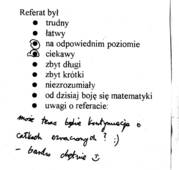 Referat był
• trudny
• łatwy
• na odpowiednim poziomie
• ciekawy
• zbyt długi
• zbyt krótki
• niezrozumiały
• od dzisiaj boję się matematyki
• uwagi o referacie:
może teraz będzie kontynuacja o
całkach oznaczonych? :)
- bardzo chętnie